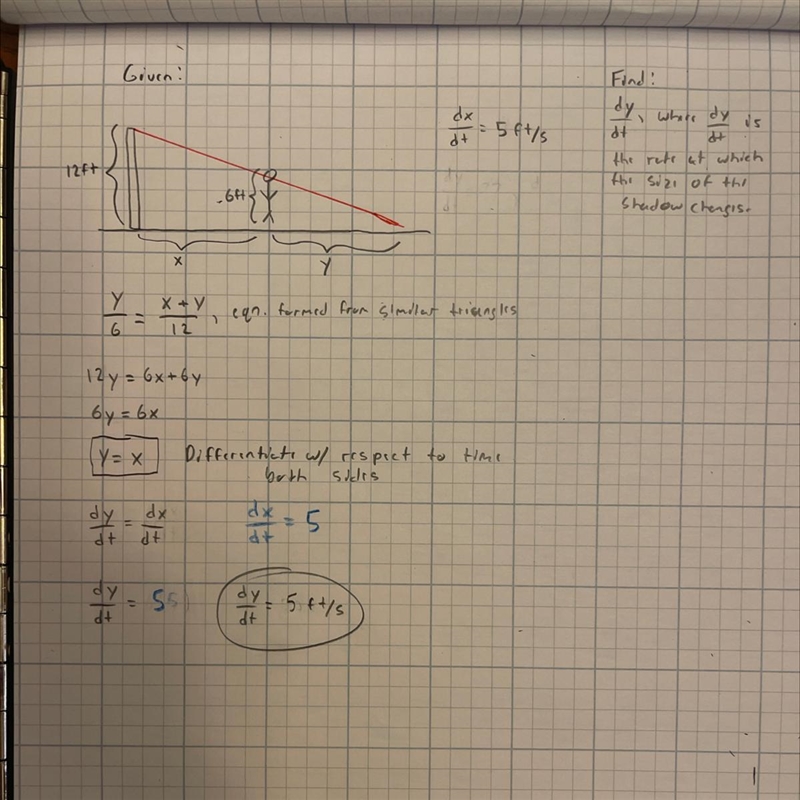 Given:
Find:
dx/dt = 5 ft/s
dy/dt, where dy/dt is
the rate at which
the size of the
shadow changes.
12ft
6ft
x
y
y/6 = x + y/12, eqn. formed from similar triangles
12y = 6x+6y
6y = 6x
y = x Differentiate w/ respect to time
both sides
dy/dt = dx/dt dx/dt = 5
dy/dt = 5 dy/dt = 5 ft/s